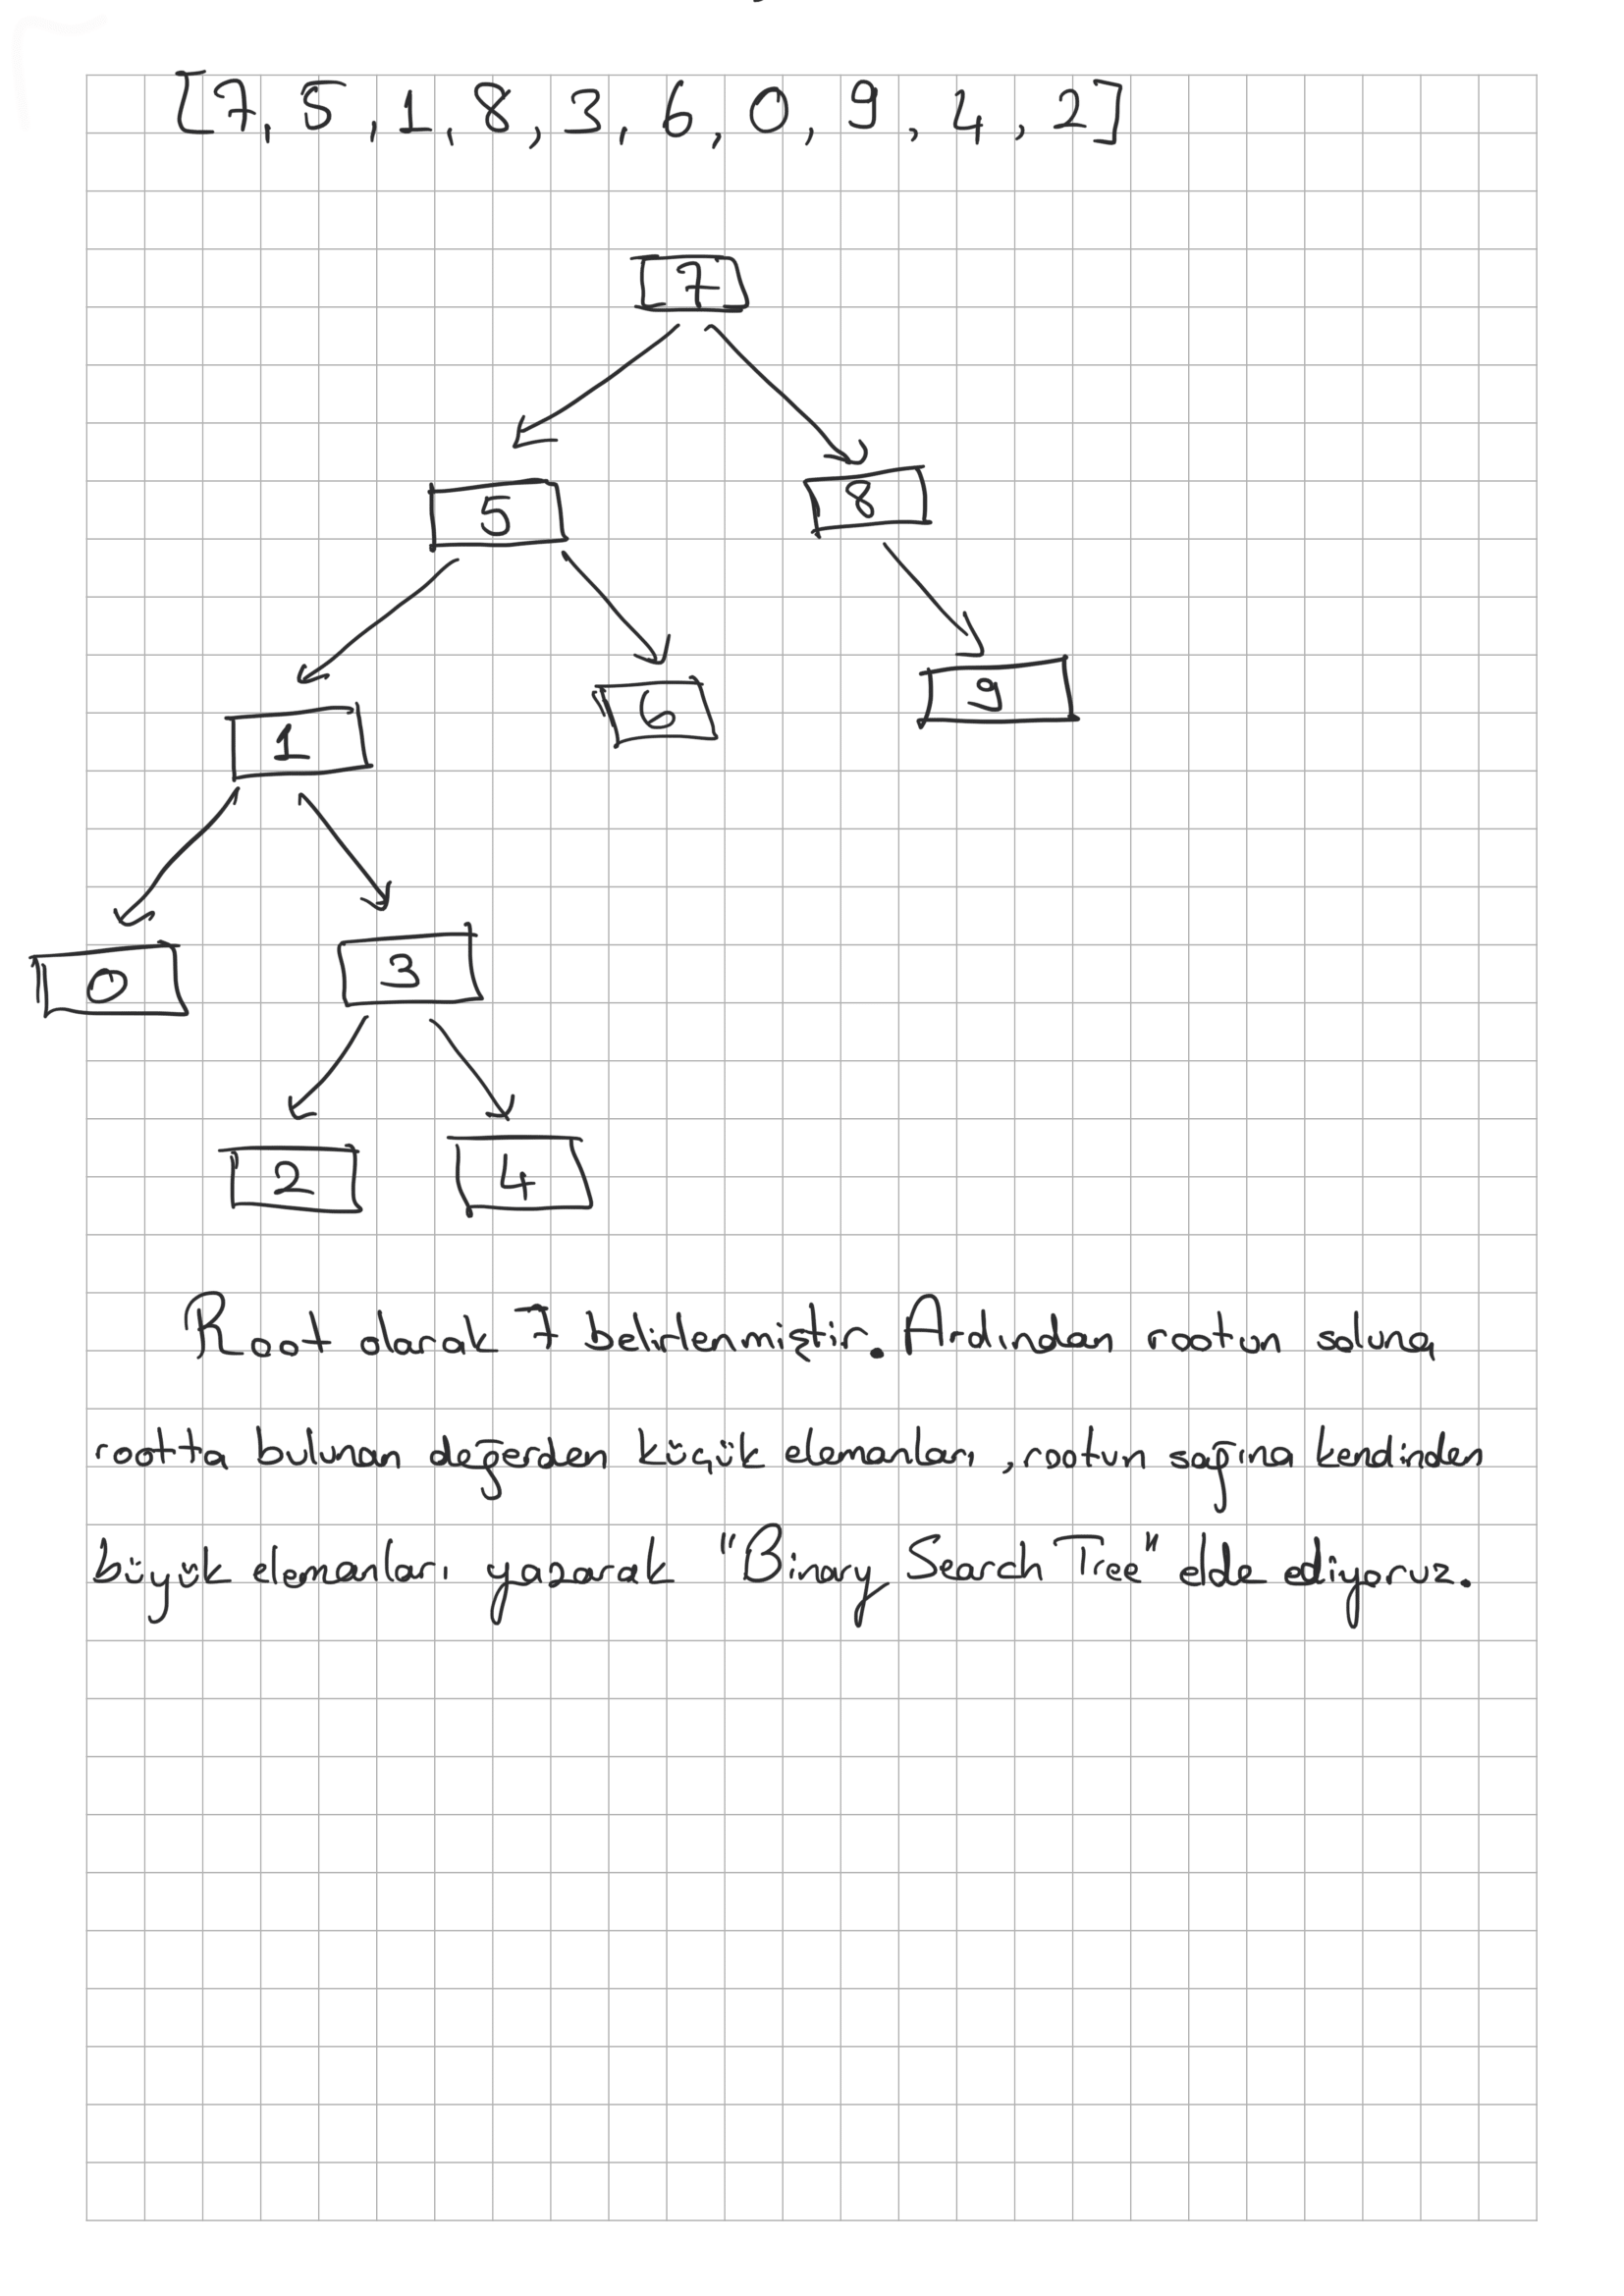 [7, 5, 1, 8, 3, 6, 0, 9, 4, 2]
7
5
8
1
6
9
0
3
2
4
Root olarak 7 belirlenmiştir. Ardından rootun soluna
rootta bulunan değerden küçük elemanları, rootun sağına kendinden
büyük elemanları yazarak "Binary Search Tree" elde ediyoruz.